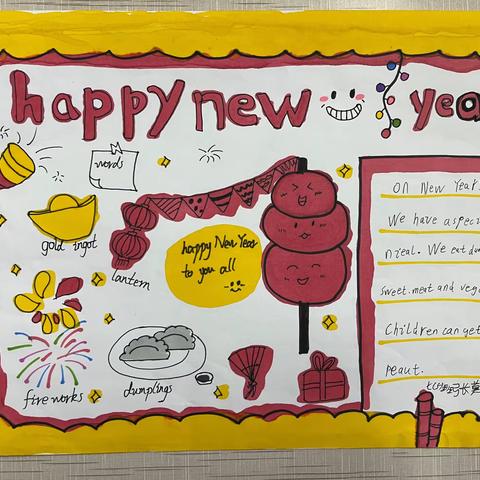 happy new yea
words
gold ingot
lantern
happy New Year
to you all
fireworks
dumplings
On New Year
We have a speci
meal. We eat du
sweet. meat and veg
Children can get